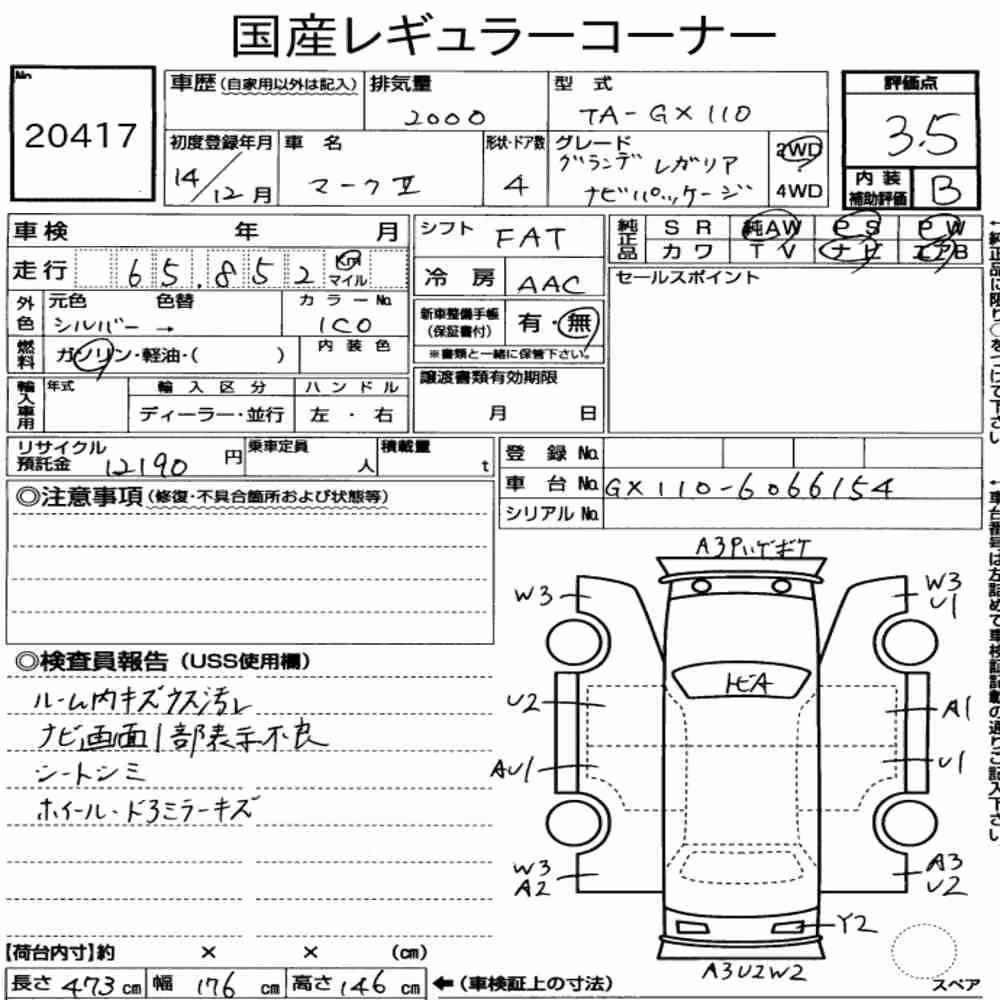 国産レギュラーコーナー
No.
20417
車歴 (自家用以外は記入)
排気量
2000
型式
TA-GX110
評価点
3.5
初度登録年月
14/12月
車名
マークⅡ
形状・ドア数
4
グレード
グランデ レガリア
ナビパッケージ
2WD
4WD
内装
補助評価
B
車検 年 月
走行 65.852 Km マイル
外色
元色 色替
シルバー →
カラーNo.
1C0
燃料
ガソリン・軽油・( )
内装色
輸入車用
年式
輸入区分
ディーラー・並行
ハンドル
左・右
シフト
FAT
冷房
AAC
新車整備手帳
(保証書付)
有・無
※書類と一緒に保管下さい。
譲渡書類有効期限
月 日
純正品
SR 純AW PS PW
カワ TV ナビ エアB
セールスポイント
←純正品に限り○をつけて下さい
リサイクル
預託金
12190 円
乗車定員
人
積載量
t
登録No.
車台No.
GX110-6066154
シリアルNo.
←車台番号は左詰めで車検証記載の通りご記入下さい。
◎注意事項 (修復・不具合箇所および状態等)
◎検査員報告 (USS使用欄)
ルーム内キズウス汚レ
ナビ画面1部表示不良
シートシミ
ホイール・ドアミラーキズ
A3Pハゲボケ
W3
W3
U1
トビA
U2
A1
AU1
U1
W3
A2
A3
U2
Y2
A3U2W2
スペア
【荷台内寸】約 × × (cm)
長さ 473 cm 幅 176 cm 高さ 146 cm ←(車検証上の寸法)